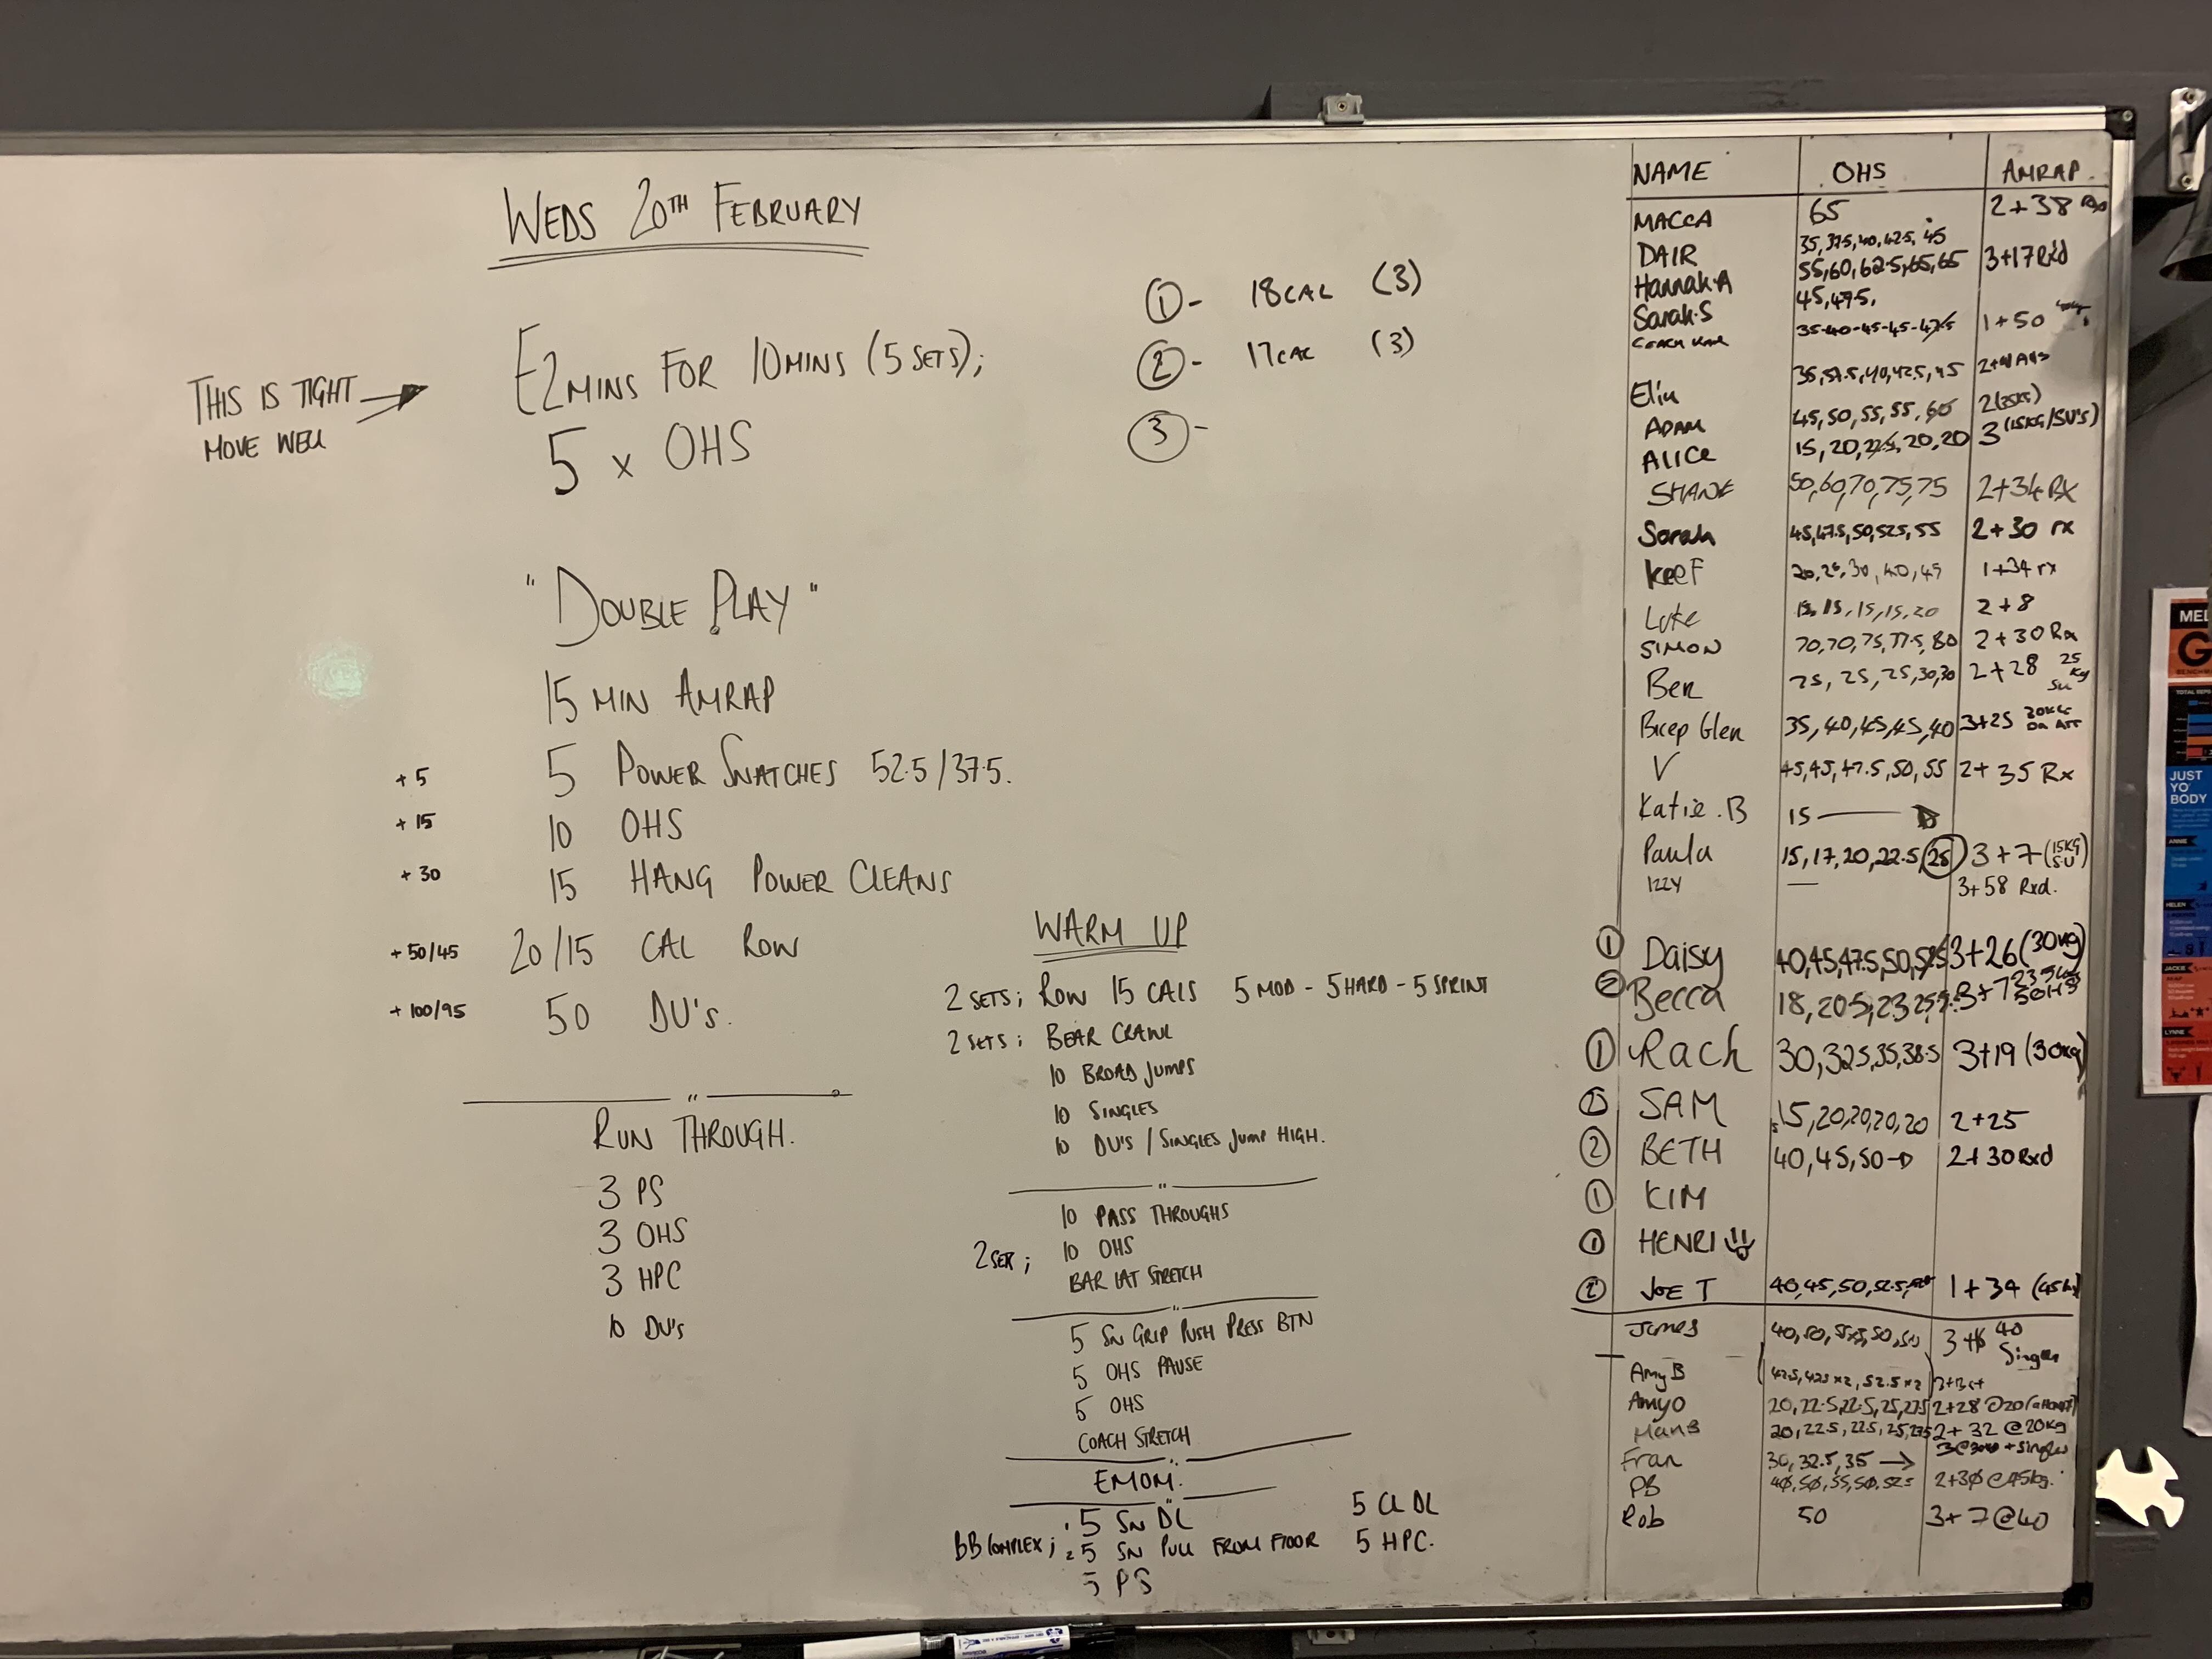 WEDS 20TH FEBRUARY
THIS IS TIGHT
MOVE WELL
E2MINS FOR 10MINS (5 SETS);
5 x OHS
① - 18CAL (3)
② - 17CAL (3)
③ -
"DOUBLE PLAY"
15 MIN AMRAP
+ 5 5 POWER SNATCHES 52.5/37.5.
+ 15 10 OHS
+ 30 15 HANG POWER CLEANS
+ 50/45 20/15 CAL ROW
+ 100/95 50 DU's.
RUN THROUGH.
3 PS
3 OHS
3 HPC
10 DU's
WARM UP
2 SETS; ROW 15 CALS 5 MOD - 5 HARD - 5 SPRINT
2 SETS; BEAR CRAWL
10 BROAD JUMPS
10 SINGLES
10 DU's / SINGLES JUMP HIGH.
10 PASS THROUGHS
2 SETS; 10 OHS
BAR LAT STRETCH
5 SN GRIP PUSH PRESS BTN
5 OHS PAUSE
5 OHS
COACH STRETCH
EMOM.
5 SN DL 5 CL DL
BB COMPLEX; 5 SN PULL FROM FLOOR 5 HPC.
5 PS
NAME OHS AMRAP
MACCA 65 2+38 Rx
DAIR 35, 37.5, 40, 42.5, 45
Hannah.A 55, 60, 62.5, 65, 65 3+17 Rxd
Sarah.S 45, 47.5,
35-40-45-45-47.5 1+50
35, 37.5, 40, 42.5, 45
ADAM 45, 50, 55, 55, 60 2 (35KG)
ALICE 15, 20, 22.5, 20, 20 3 (15KG/SU's)
SHANE 50, 60, 70, 75, 75 2+34 RX
Sarah 45, 47.5, 50, 52.5, 55 2+30 rx
KeeF 20, 25, 30, 40, 45 1+34 rx
Luke 15, 15, 15, 15, 20 2+8
SIMON 70, 70, 75, 77.5, 80 2+30 Rx
Ben 25, 25, 25, 30, 30 2+28 25 Kg SU
Bicep Glen 35, 40, 45, 45, 40 3+25 DU ATT
V 45, 45, 47.5, 50, 55 2+35 Rx
Katie.B 15 →
Paula 15, 17, 20, 22.5, 25 3+7 (15KG SU)
IZZY — 3+58 Rxd.
① Daisy 40, 45, 47.5, 50, 52.5 3+26 (30kg)
② Becca 18, 20.5, 23, 3+7
① Rach 30, 32.5, 35, 38.5 3+19 (30kg)
② SAM 15, 20, 20, 20, 20 2+25
② BETH 40, 45, 50 → 2+30 Rxd
① KIM
① HENRI
② JOE T 40, 45, 50, 52.5, 1+34 (45kg)
James 40, 50, 50, 50 40 Singles
Amy B 42.5, 42.5 x2, 52.5 x2
Amy O 20, 22.5, 22.5, 25, 27.5 2+28 @20 (attempt)
20, 22.5, 22.5, 25, 27.5 2+32 @20kg
Fran 30, 32.5, 35 → + singles
PB 40, 50, 55, 50, 52.5 2+30 @45kg.
Rob 50 3+7 @40
MEL
G
TOTAL REPS
JUST
YO'
BODY
ANNIE
HELEN
JACKIE
LYNNE